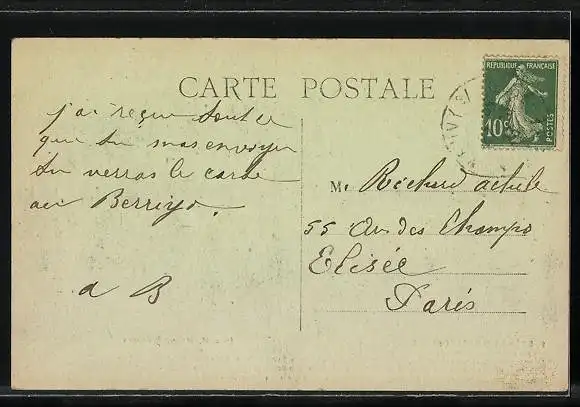 CARTE POSTALE
REPUBLIQUE FRANÇAISE
10c
POSTES
j'ai reçue tout ce
que tu mas envoyer
tu verras le carde
au Berriyo.
a B
M. Richard
55 Av des Champs
Elisée
Paris